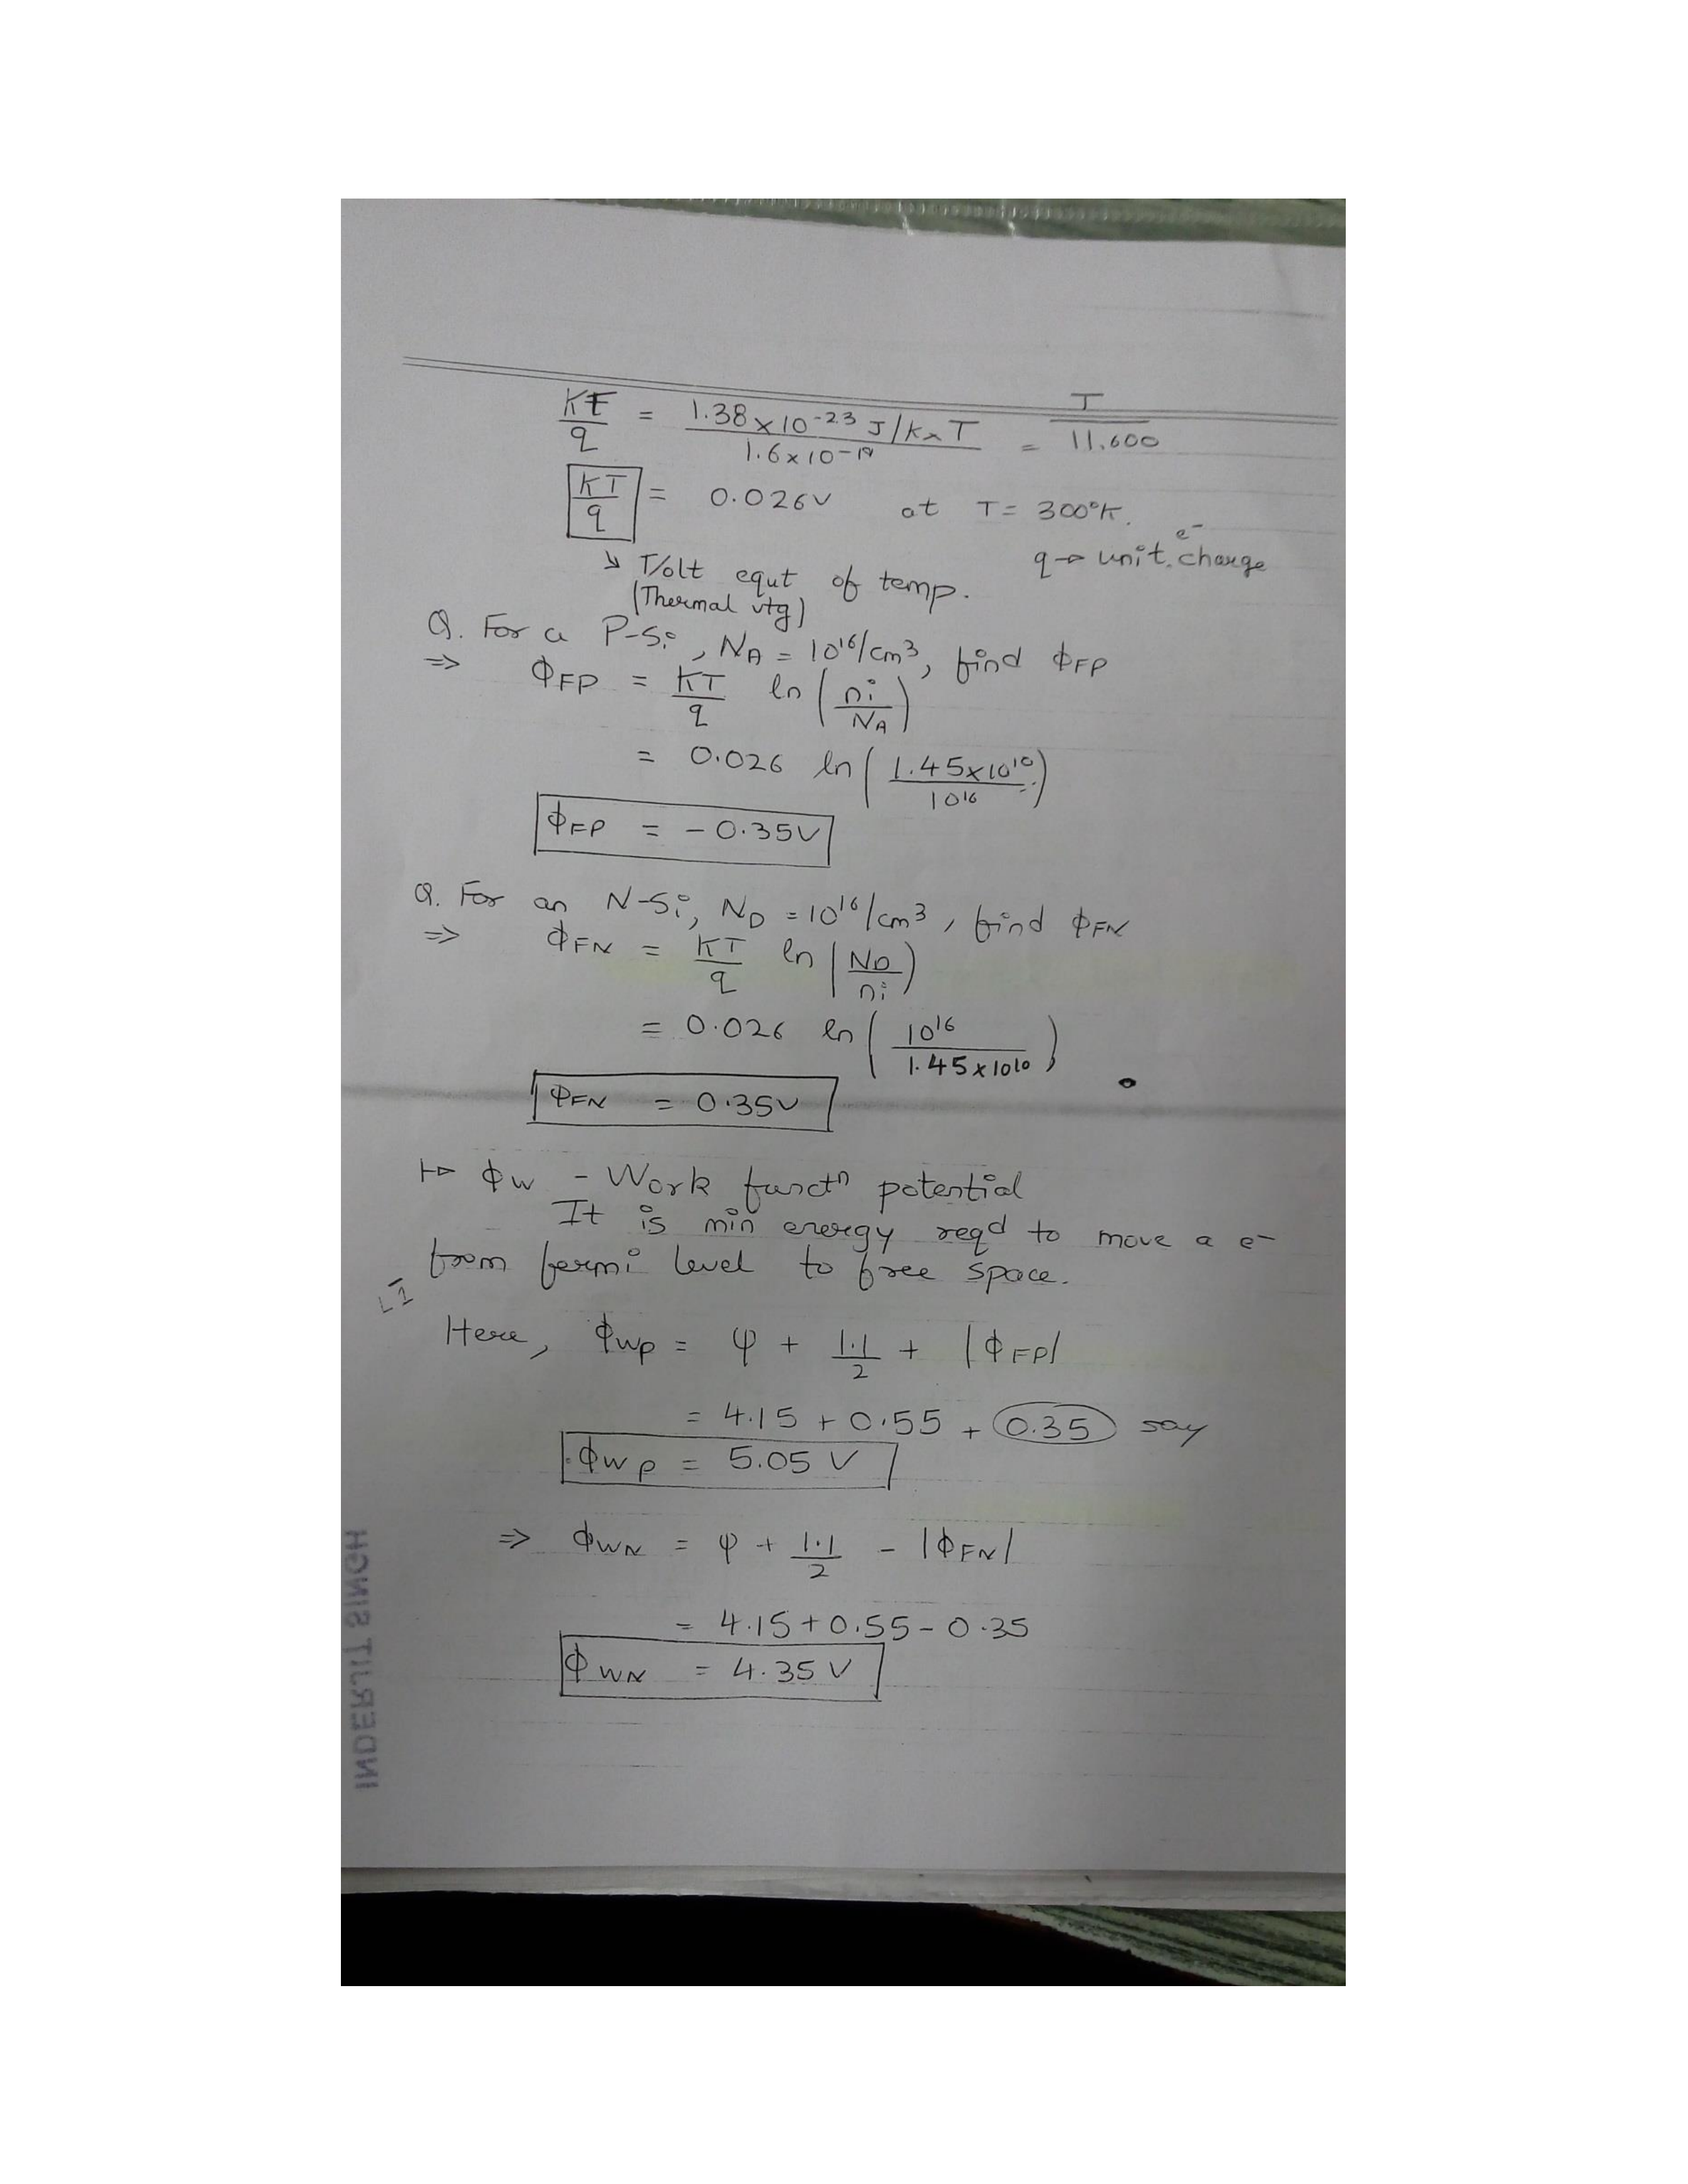 KT/q = 1.38×10⁻²³ J/K×T / 1.6×10⁻¹⁹ = T/11,600
KT/q = 0.026V at T = 300°K.
q → unit e⁻ charge
↘ Volt eqvt of temp.
(Thermal vtg)
Q. For a P-Si, NA = 10¹⁶/cm³, find ϕFP
⇒ ϕFP = KT/q ln(ni/NA)
= 0.026 ln(1.45×10¹⁰/10¹⁶)
ϕFP = -0.35V
Q. For an N-Si, ND = 10¹⁶/cm³, find ϕFN
⇒ ϕFN = KT/q ln(ND/ni)
= 0.026 ln(10¹⁶/1.45×10¹⁰)
ϕFN = 0.35V
↦ ϕW - Work functⁿ potential
It is min energy reqd to move a e⁻
from fermi level to free space.
Here, ϕWP = φ + 1.1/2 + |ϕFP|
= 4.15 + 0.55 + 0.35 say
ϕWP = 5.05 V
⇒ ϕWN = φ + 1.1/2 - |ϕFN|
= 4.15 + 0.55 - 0.35
ϕWN = 4.35 V
INDERJIT SINGH